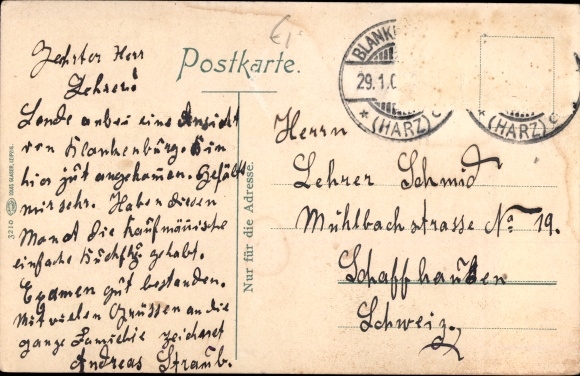 Postkarte.
BLANK
29.1.0
(HARZ) c
(HARZ) c
Nur für die Adresse.
3210
Herr
Lehrer!
Sende anbei eine Ansicht
von Blankenburg. Bin
hier gut angekommen. Gefällt
mir sehr. Haben diesen
Monat die Kaufmänische
einfache Buchfhg gehabt.
Examen gut bestanden.
Mit vielen Grüssen an die
ganze Familie zeichnet
Andreas Straub.
Herrn
Lehrer Schmid
Mühlbachstrasse No 19.
Schaffhausen
Schweiz.